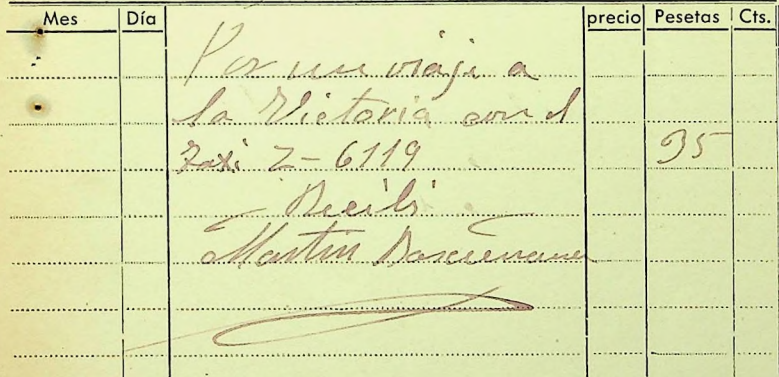 Mes Día precio Pesetas Cts.
Por un viaje a
la Victoria con el
Taxi Z-6119 95
Recibí
Martin